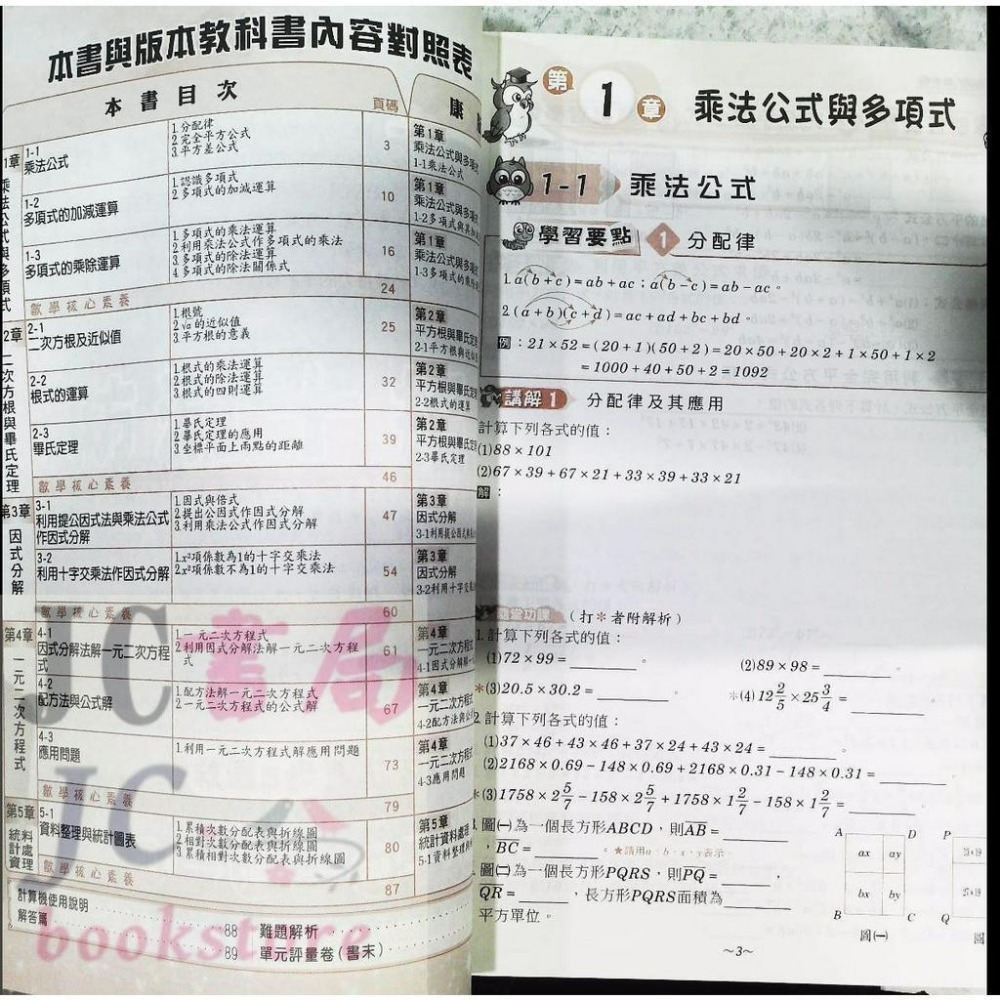 本書與版本教科書內容對照表
本書目次
頁碼
康
1-1
乘法公式
1.分配律
2.完全平方公式
3.平方差公式
3
第1章
乘法公式與多項
1-1乘法公式
1章 乘法公式與多項式
1-2
多項式的加減運算
1.認識多項式
2.多項式的加減運算
10
第1章
乘法公式與多項
1-2多項式與其加減
1-3
多項式的乘除運算
1.多項式的乘法運算
2.利用乘法公式作多項式的乘法
3.多項式的除法運算
4.多項式的除法關係式
16
第1章
乘法公式與多項
1-3多項式的乘除
數學核心素養
24
2章 二次方根與畢氏定理
2-1
二次方根及近似值
1.根號
2.√a的近似值
3.平方根的意義
25
第2章
平方根與畢氏定
2-1平方根與近似
2-2
根式的運算
1.根式的乘法運算
2.根式的除法運算
3.根式的四則運算
32
第2章
平方根與畢氏定
2-2根式的運算
2-3
畢氏定理
1.畢氏定理
2.畢氏定理的應用
3.坐標平面上兩點的距離
39
第2章
平方根與畢氏定
2-3畢氏定理
數學核心素養
46
第3章 因式分解
3-1
利用提公因式法與乘法公式
作因式分解
1.因式與倍式
2.提出公因式作因式分解
3.利用乘法公式作因式分解
47
第3章
因式分解
3-1利用提公因式
3-2
利用十字交乘法作因式分解
1.x²項係數為1的十字交乘法
2.x²項係數不為1的十字交乘法
54
第3章
因式分解
3-2利用十字交乘
數學核心素養
60
第4章 一元二次方程式
4-1
因式分解法解一元二次方程
式
1.一元二次方程式
2.利用因式分解法解一元二次方程
式
61
第4章
一元二次方程式
4-1因式分解解一
4-2
配方法與公式解
1.配方法解一元二次方程式
2.一元二次方程式的公式解
67
第4章
一元二次方程式
4-2配方法與公
4-3
應用問題
1.利用一元二次方程式解應用問題
73
第4章
一元二次方程式
4-3應用問題
數學核心素養
79
第5章 統計資料處理
5-1
資料整理與統計圖表
1.累積次數分配表與折線圖
2.相對次數分配表與折線圖
3.累積相對次數分配表與折線圖
80
第5章
統計資料處理
5-1資料整理
數學核心素養
87
計算機使用說明
88 難題解析
解答篇
89 單元評量卷(書末)
JC書局
JC
bookstore
第1章 乘法公式與多項式
1-1 乘法公式
學習要點 1 分配律
1.a(b+c)=ab+ac;a(b-c)=ab-ac。
2.(a+b)(c+d)=ac+ad+bc+bd。
例:21×52=(20+1)(50+2)=20×50+20×2+1×50+1×2
=1000+40+50+2=1092
講解1 分配律及其應用
計算下列各式的值:
(1)88×101
(2)67×39+67×21+33×39+33×21
解:
隨堂功課 (打＊者附解析)
1.計算下列各式的值:
(1)72×99=________。
(2)89×98=________。
＊(3)20.5×30.2=________。
＊(4)12 2/5×25 3/4=________。
2.計算下列各式的值:
(1)37×46+43×46+37×24+43×24=________。
(2)2168×0.69-148×0.69+2168×0.31-148×0.31=________
＊(3)1758×2 5/7-158×2 5/7+1758×1 2/7-158×1 2/7=
圖㈠為一個長方形ABCD,則AB=________
,BC=________。★請用a、b、x、y表示
圖㈡為一個長方形PQRS,則PQ=________,
QR=________,長方形PQRS面積為________
平方單位。
A D P
ax ay
bx by
B C Q
圖㈠
圖
~3~